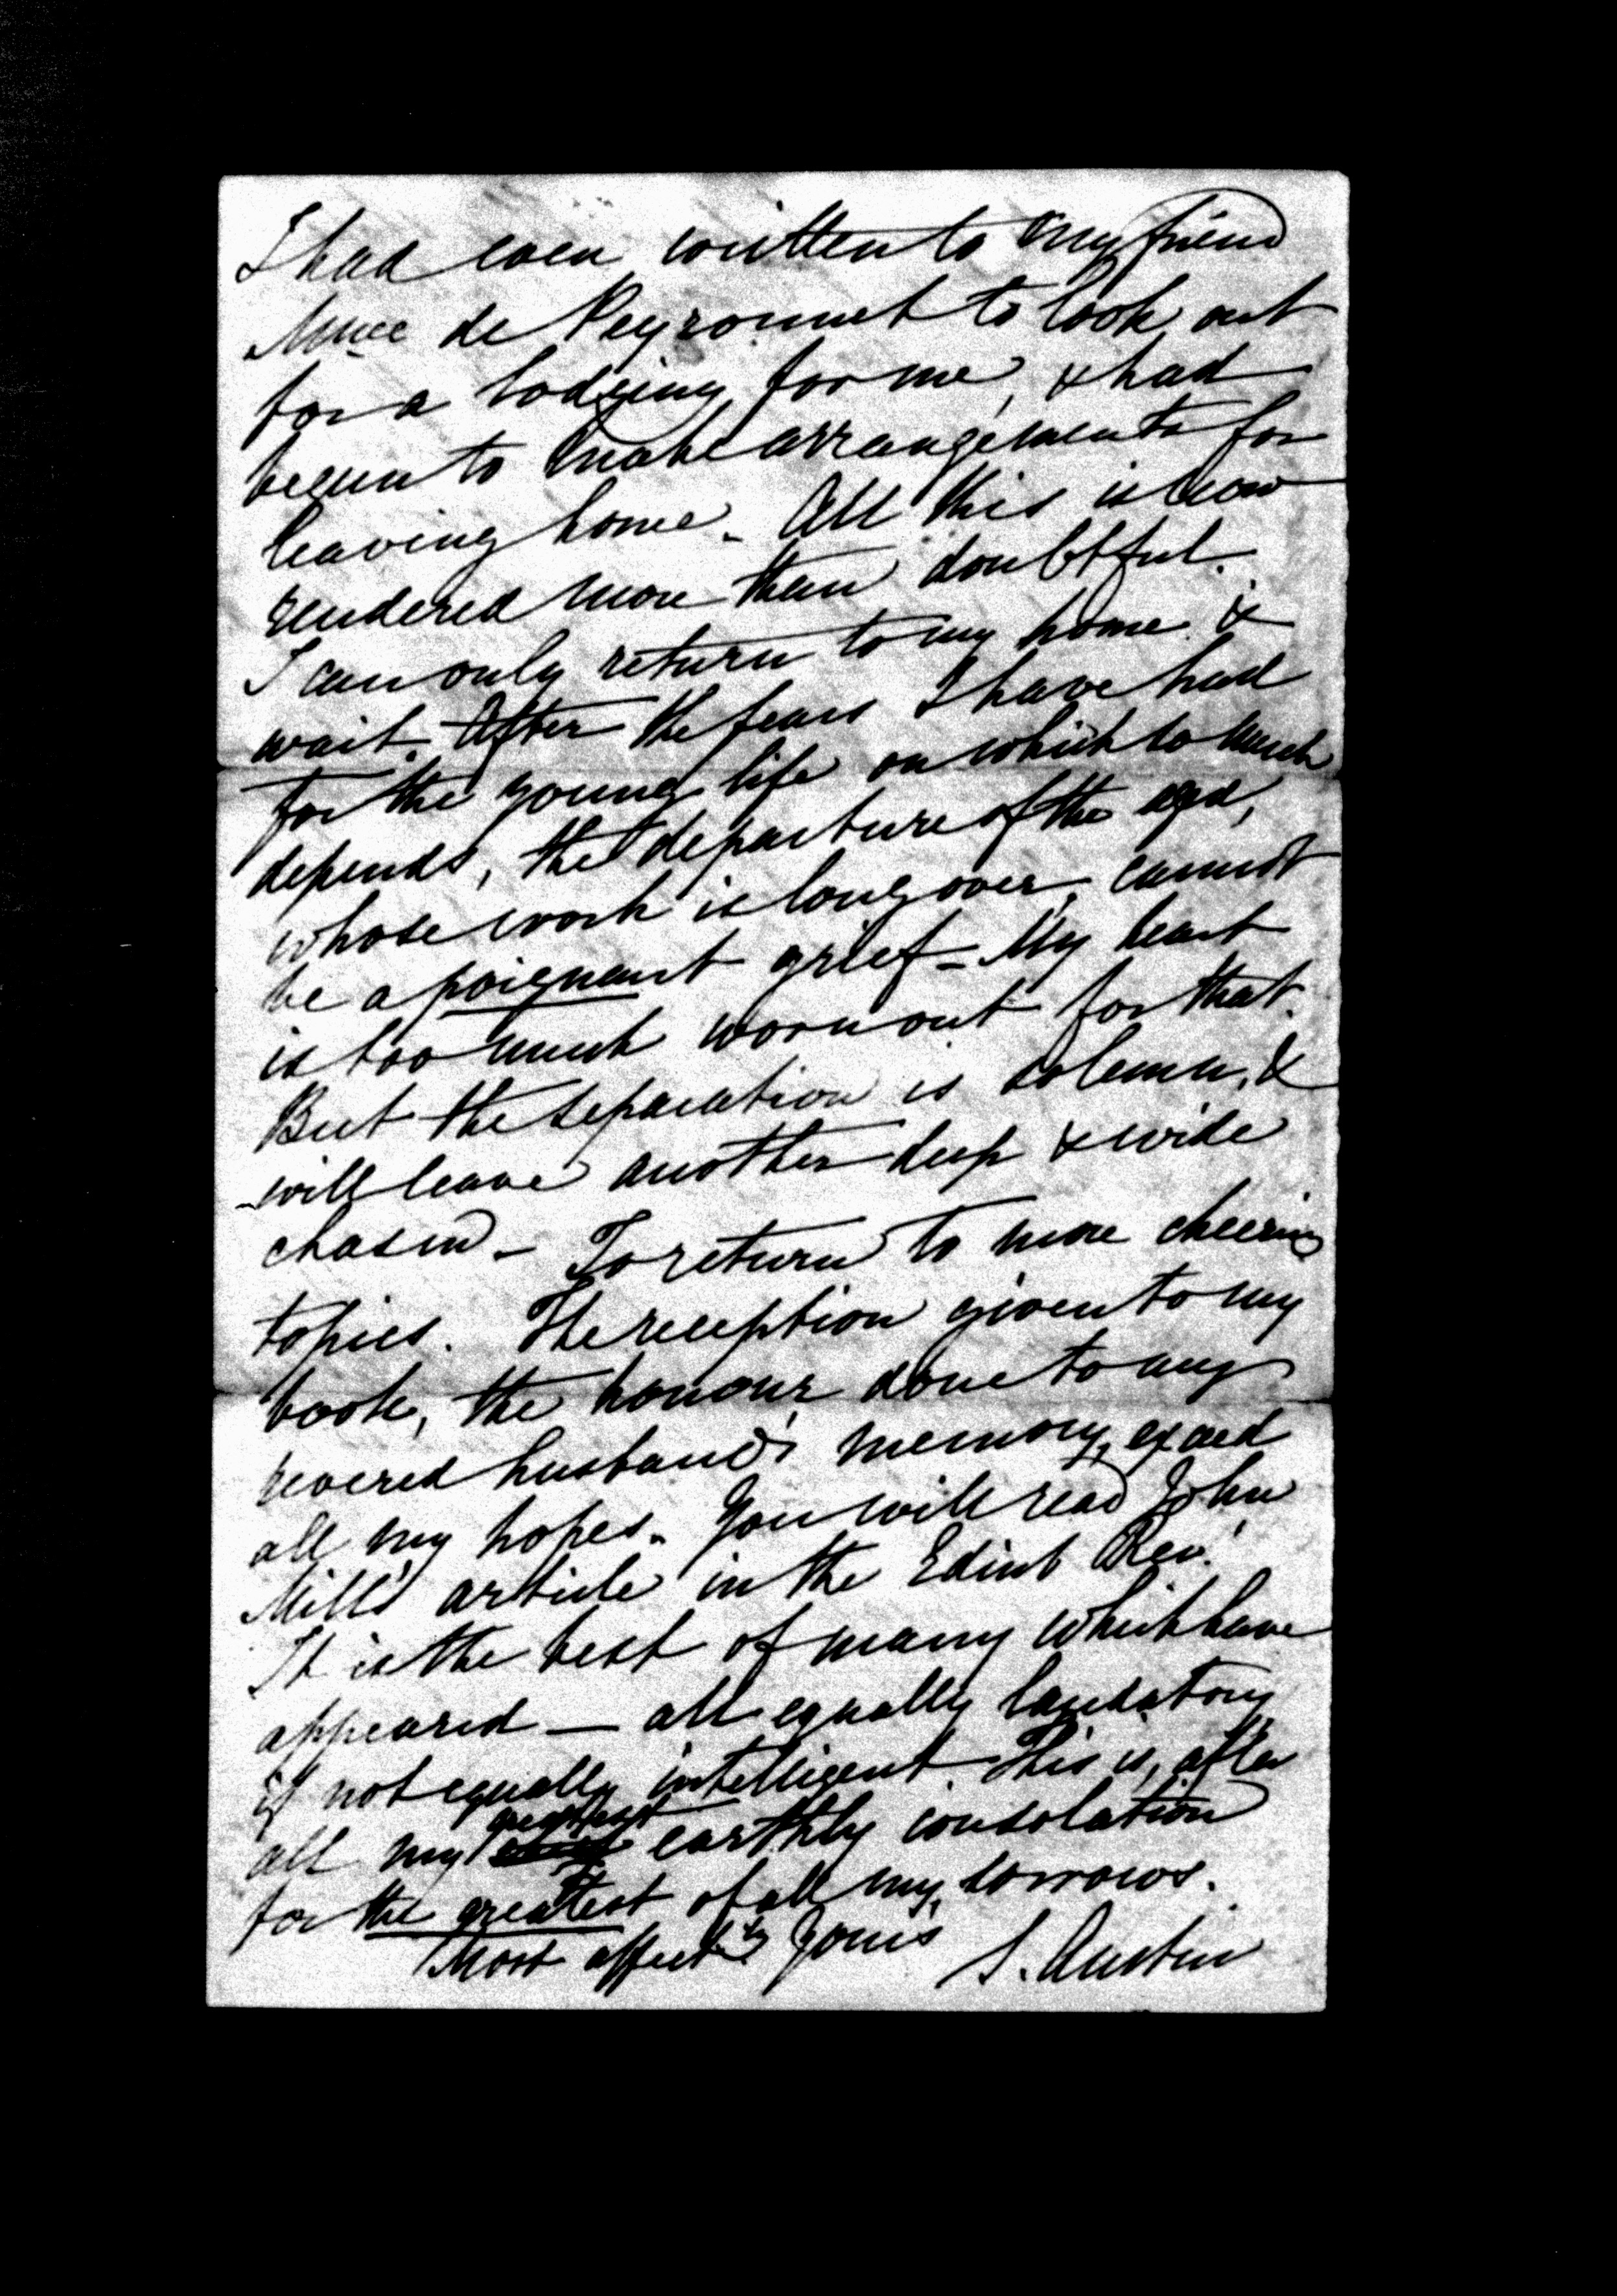 I had even written to my friend
Mme de Peyronnet to look out
for a lodging for me, & had
begun to make arrangements for
leaving home. All this is now
rendered more than doubtful.
I can only return to my home &
wait. After the fears I have had
for the young life on which so much
depends, the departure of the aged,
whose work is long over, cannot
be a poignant grief – My heart
is too much worn out for that.
But the separation is solemn, &
will leave another deep & wide
chasm – To return to more cheering
topics. The reception given to my
book, the honour done to my
revered husband's memory, exceed
all my hopes. You will read John
Mill's article in the Edinb Rev.
It is the best of many which have
appeared — all equally laudatory
if not equally intelligent. This is, after
all my greatest earthly consolation
for the greatest of all my sorrows.
Most affectly Yours
S. Austin